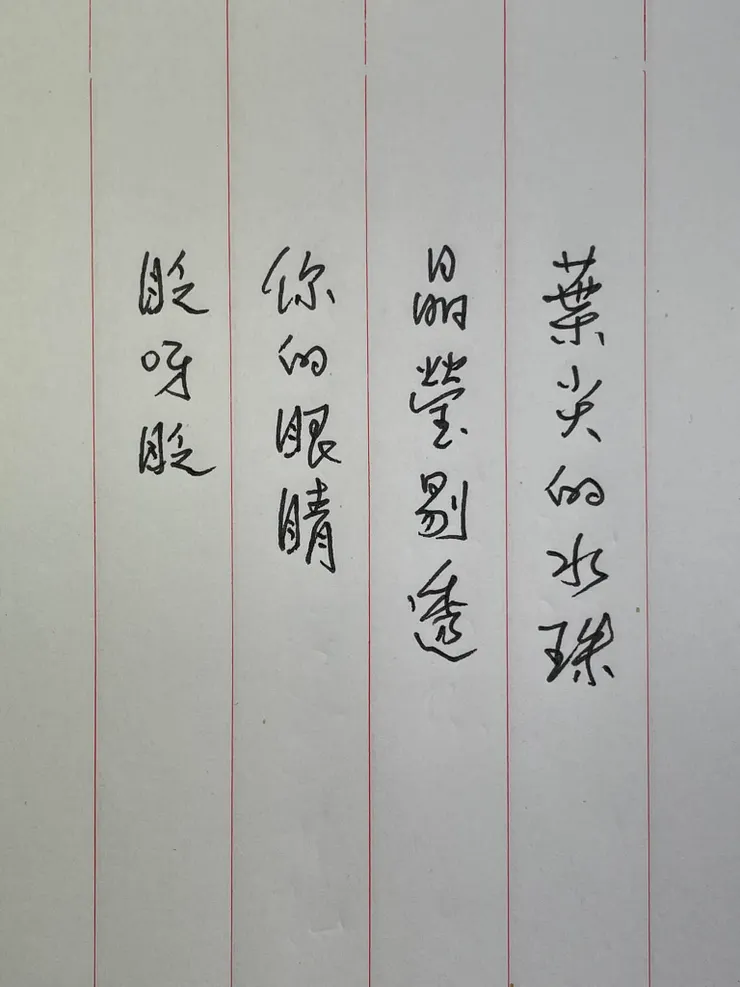 葉尖的水珠
晶瑩剔透
你的眼睛
眨呀眨